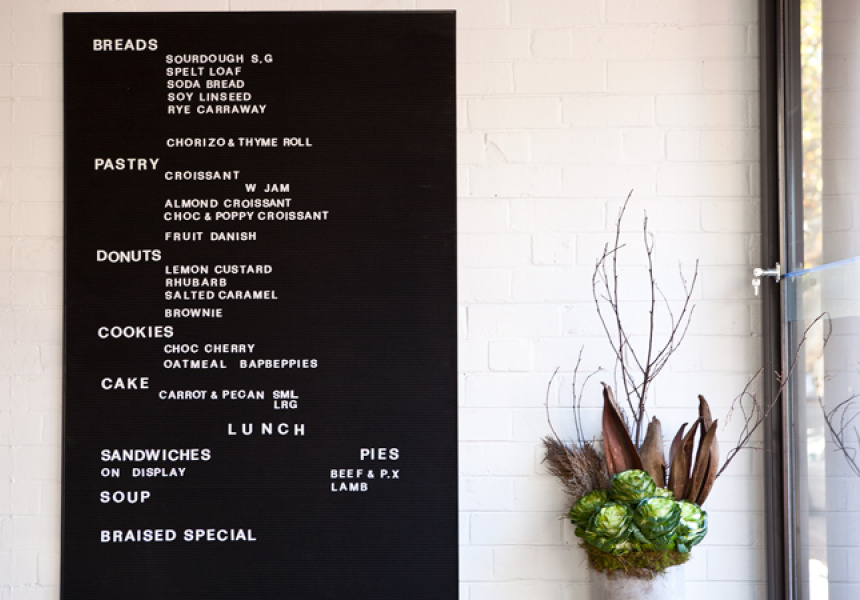 BREADS
SOURDOUGH S,G
SPELT LOAF
SODA BREAD
SOY LINSEED
RYE CARRAWAY
CHORIZO & THYME ROLL
PASTRY
CROISSANT
W JAM
ALMOND CROISSANT
CHOC & POPPY CROISSANT
FRUIT DANISH
DONUTS
LEMON CUSTARD
RHUBARB
SALTED CARAMEL
BROWNIE
COOKIES
CHOC CHERRY
OATMEAL BAPBEPPIES
CAKE
CARROT & PECAN SML
LRG
LUNCH
SANDWICHES
ON DISPLAY
SOUP
BRAISED SPECIAL
PIES
BEEF & P.X
LAMB